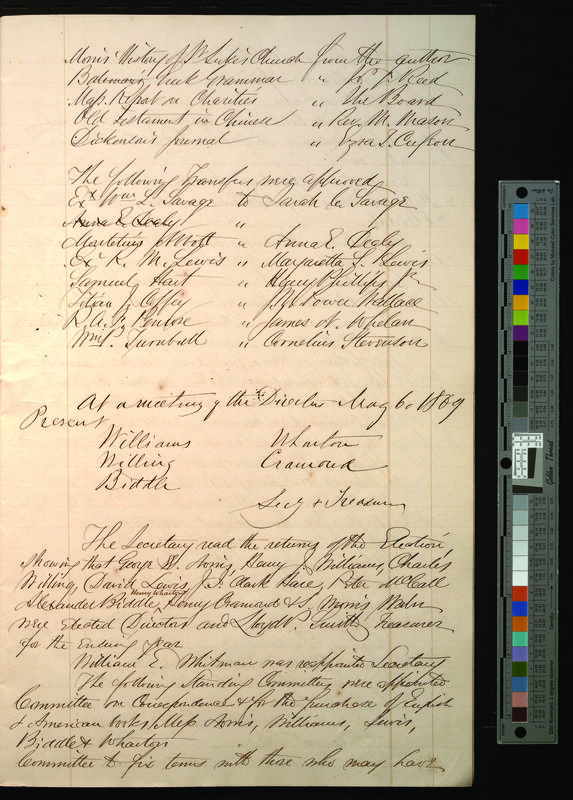 Morris' History of St Luke's Church from the author
Bateman's Greek Grammar " Jos. J. Reed
Mass. Report on Charities " The Board
Old Testament in Chinese " Rev. M. Mason
Dickenson's Journal " Ezra T. Cresson
The following Transfers were approved
Exr Wm L. Savage to Sarah Savage
Anna E. Cegly "
Abbott " Anna E. Cegly
Ex R. M. Lewis " Margaretta S. Lewis
Samuel Hart " Henry Phillips Jr
Titian J. Coffey " Power Wallace
R. A. F. Penrose " James S. Whelan
Wm P. Turnbull " Cornelius Stevenson
At a meeting of the Directors May 6. 1869
Present
Williams Wharton
Willing Cramond
Biddle
Secy & Treasurer
The Secretary read the returns of the Election
showing that George W. Norris, Henry J. Williams, Charles
Willing, David Lewis, J. I. Clark Hare, Peter McCall
Henry Wharton
Alexander Biddle, Henry Cramond & S. Morris Waln
were elected Directors and Lloyd P. Smith Treasurer
for the Ensuing year
William E. Whitman was reappointed Secretary
The following Standing Committees were appointed
Committee on Correspondence & for the purchase of English
& American books Mess Norris, Williams, Lewis,
Biddle & Wharton
Committee to fix terms with those who may have